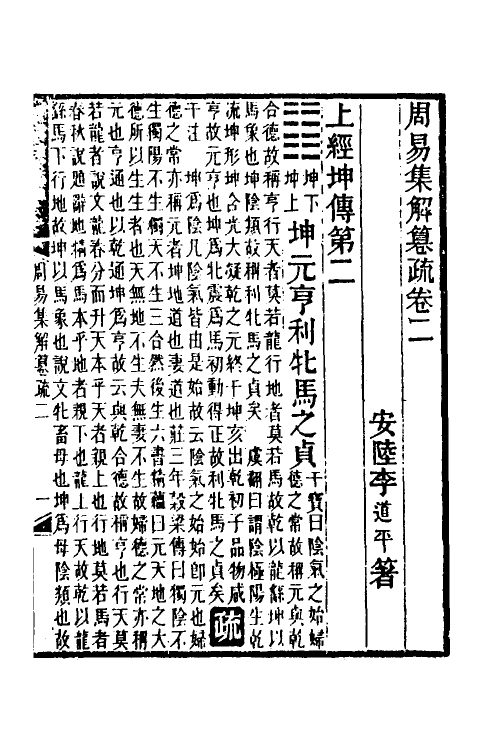 周易集解纂疏卷二
安陸李道平著
上經坤傳第二
坤下坤上坤元亨利牝馬之貞干寶曰陰氣之始婦德之常故稱元與乾
合德故稱亨行天者莫若龍行地者莫若馬故乾以龍繇坤以
馬象也坤陰類故稱利牝馬之貞矣 虞翻曰謂陰極陽生乾
流坤形坤合光大凝乾之元終于坤亥出乾初子品物咸
亨故元亨也坤爲牝震爲馬初動得正故利牝馬之貞矣疏
干注 坤爲陰凡陰氣皆由是始故云陰氣之始始卽元也婦
德之常亦稱元者坤地道也妻道也莊三年穀梁傳曰獨陰不
生獨陽不生獨天不生三合然後生六書精蘊曰元天地之大
德所以生生者也天無地不生夫無妻不生故婦德之常亦稱
元也亨通也以乾通坤爲亨故云與乾合德故稱亨也行天莫
若龍者說文龍春分而升天本乎天者親上也行地莫若馬者
春秋說題辭地精爲馬本乎地者親下也龍上行天故乾以龍
繇馬下行地故坤以馬象也說文牝畜母也坤爲母陰類也故
周易集解纂疏二
一